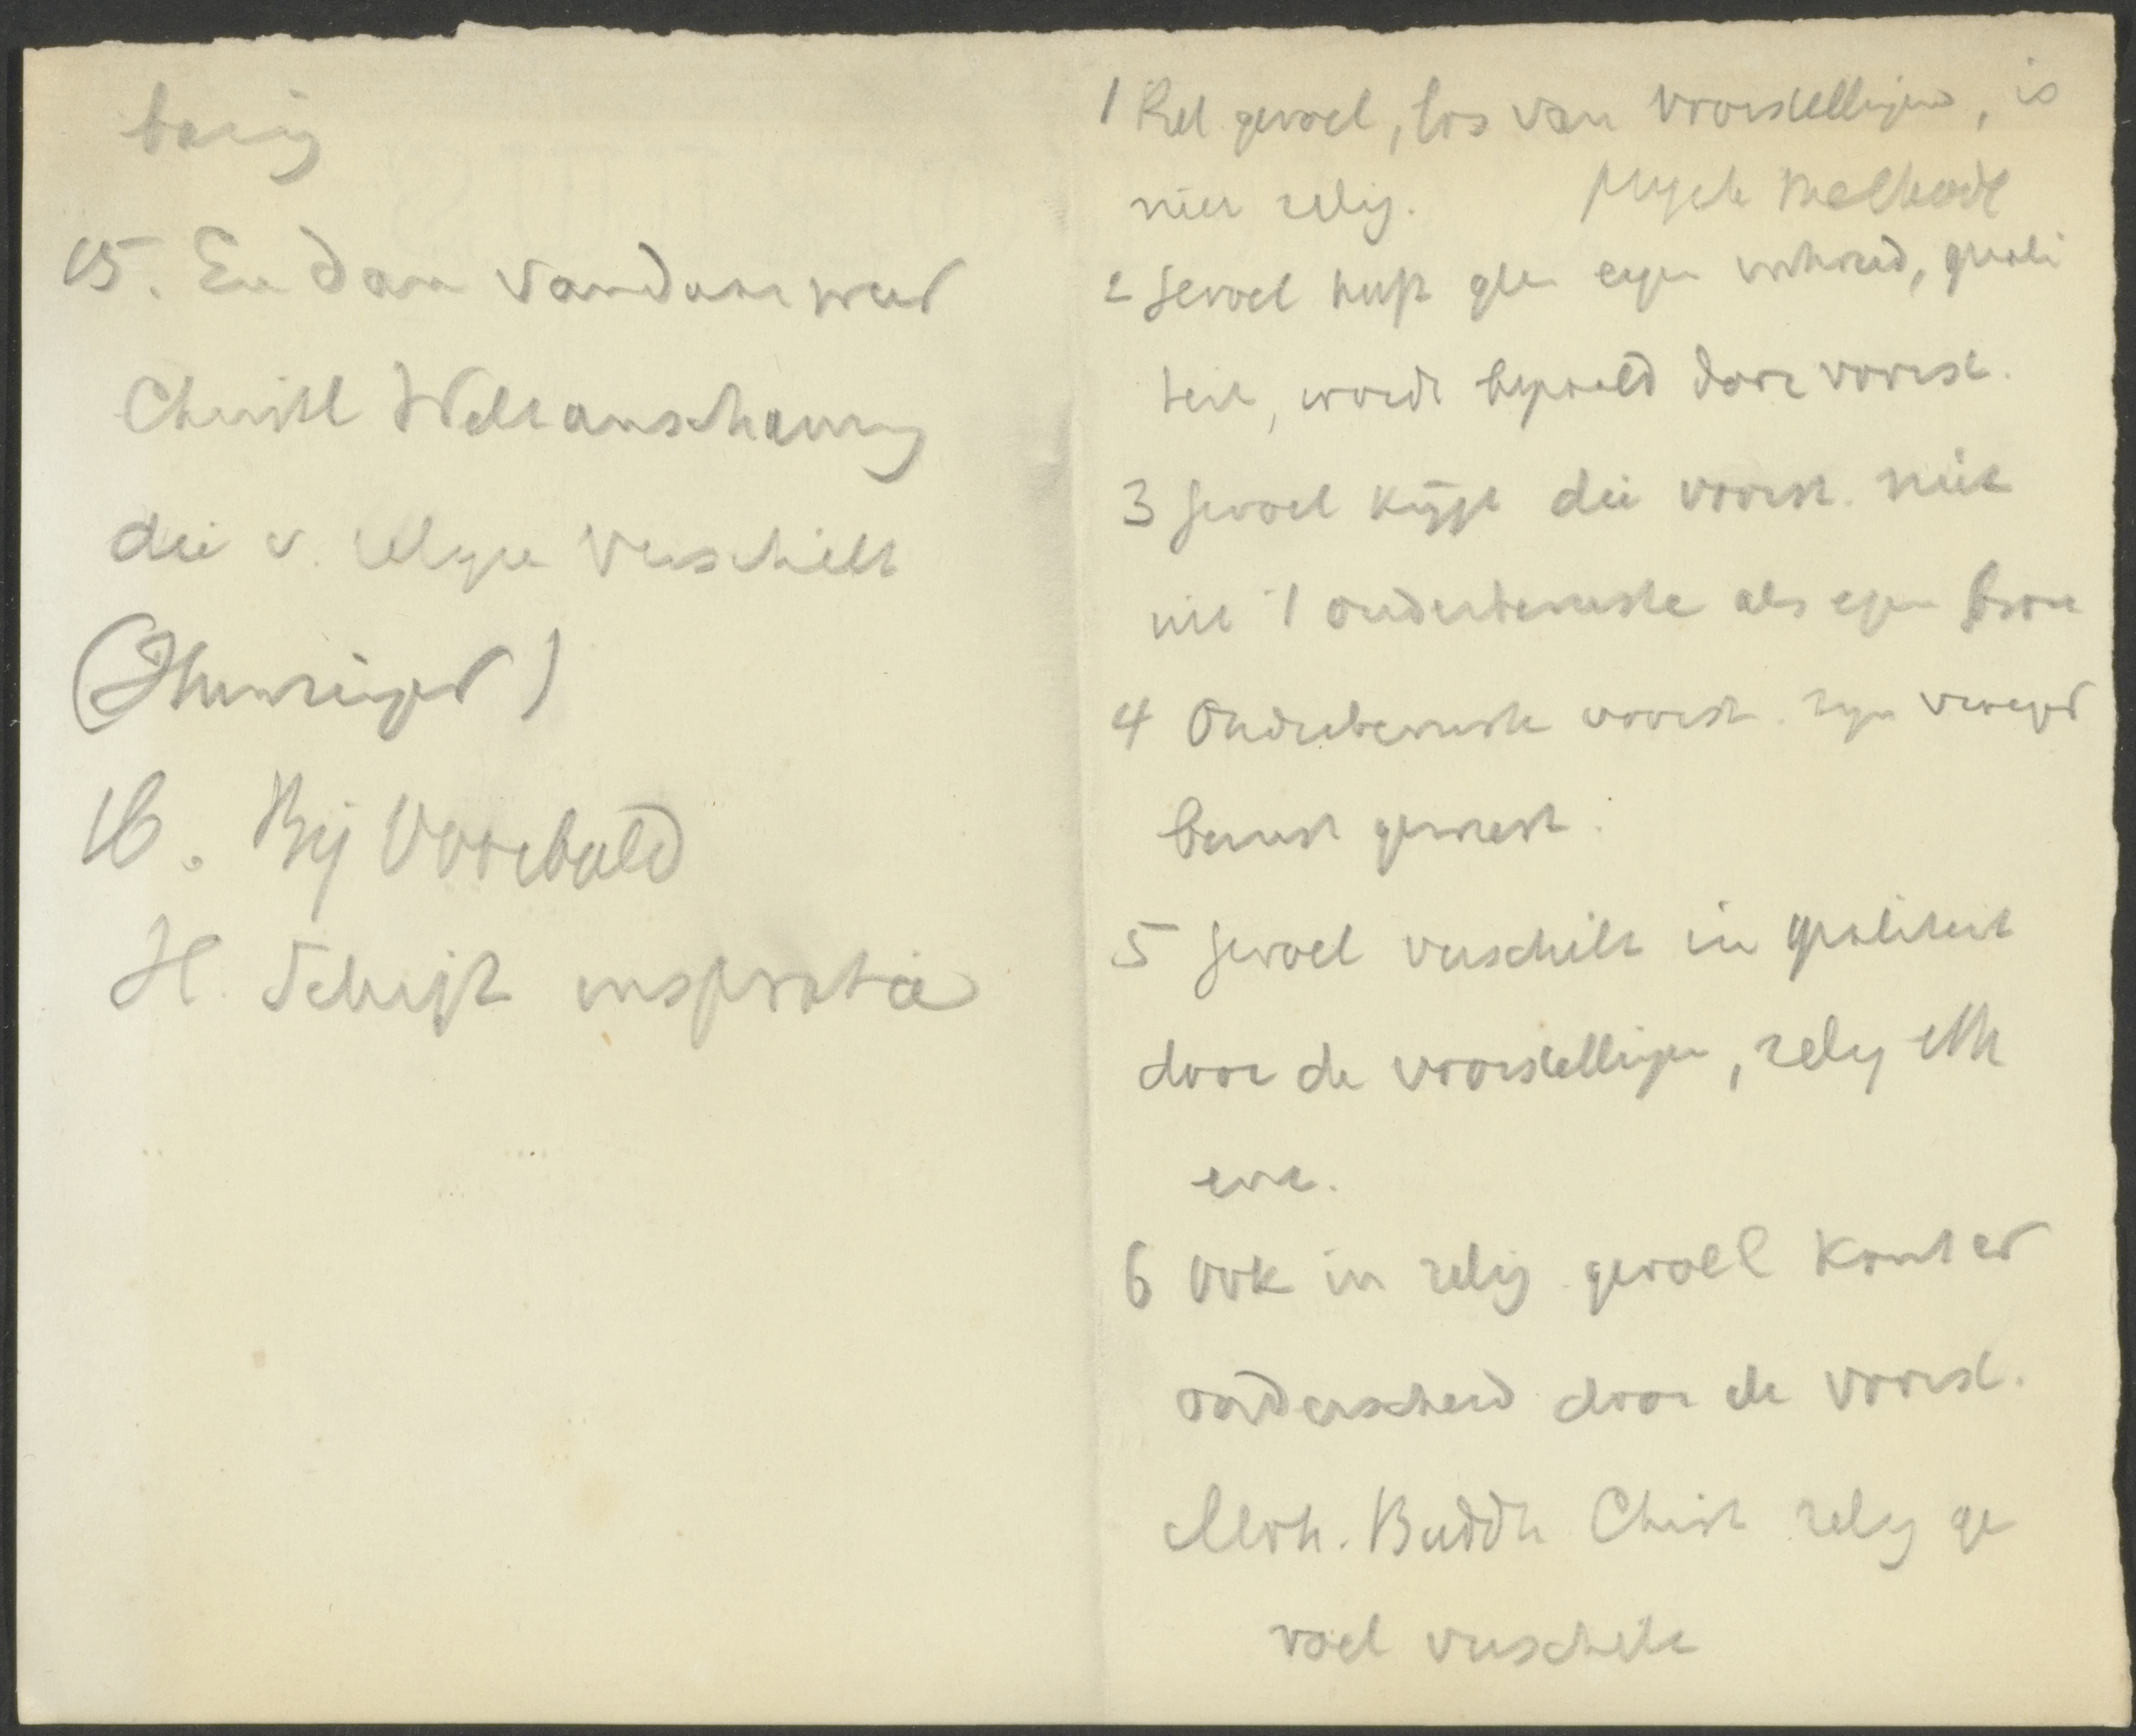 bazig
15. En dan vandaar weer
Christl Weltanschauung
die v. religie verschilt
(Hunzinger)
16. Bij Voorbeeld
H. Schrift inspiratie
1 Rel. gevoel, los van voorstellingen, is
niet relig. Psych methode
2 Gevoel heeft geen eigen inhoud, quali
teit, wordt bepaald door voorst.
3 Gevoel krijgt die voorst. niet
uit 't onderbewuste als eigen bron
4 Onderbewuste voorst. zijn vroeger
bewust geweest.
5 Gevoel verschilt in qualiteit
door de voorstellingen, relig eth
enz.
6 Ook in relig gevoel komt er
onderscheid door de voorst.
Moh. Buddh Christ relig ge
voel verschilt